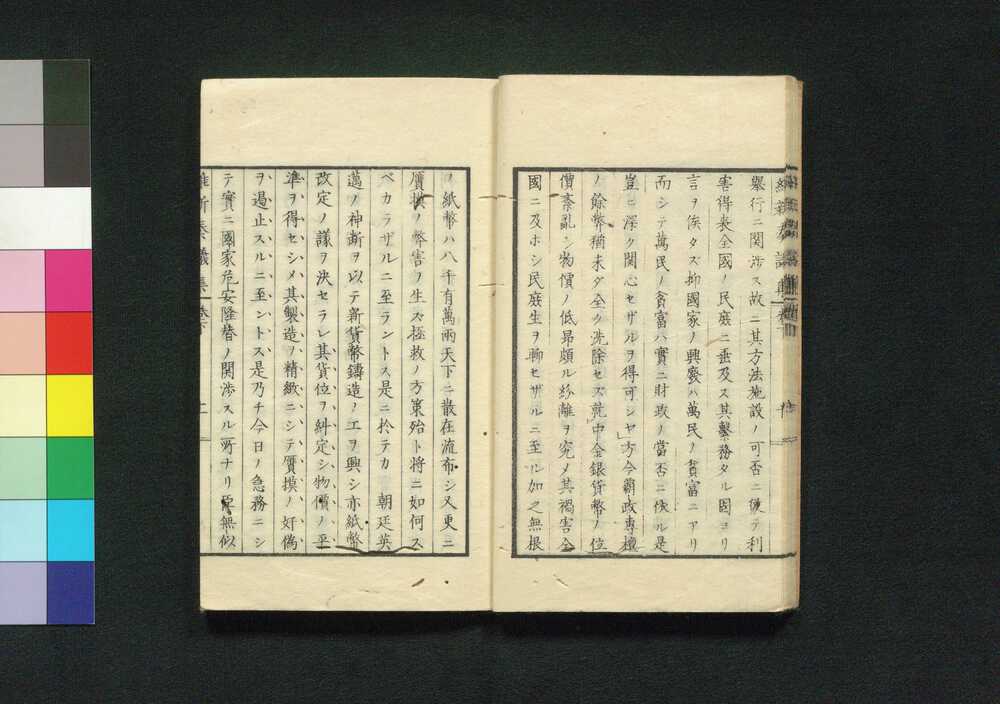 舉行ニ関渉ス故ニ其方法施設ノ可否ニ便テ利
害得喪全國ノ民庶ニ垂及ス其繋務タル固ヨリ
言ヲ俟タズ抑國家ノ興廢ハ萬民ノ貧富ニアリ
而シテ萬民ノ貧富ハ實ニ財政ノ當否ニ依ル是
豈ニ深ク関心セザルヲ得可シヤ方今覇政専擅
ノ餘幣猶未ダ全ク洗除セズ就中金銀貨幣ノ位
價紊乱シ物價ノ低昻頗ル紛離ヲ究メ其禍害全
國ニ及ホシ民庶生ヲ聊セザルニ至ル加之無根
ノ紙幣ハ八千有萬兩天下ニ散在流布シ又更ニ
贋摸ノ弊害ヲ生ス拯救ノ方策殆ト將ニ如何ス
ベカラザルニ至ラントス是ニ於テカ 朝廷英
邁ノ神斷ヲ以テ新貨幣鑄造ノ工ヲ興シ亦紙幣
改定ノ議ヲ決セラレ其貨位ヲ糾定シ物價ノ平
準ヲ得セシメ其製造ノ精緻ニシテ贋摸ノ奸偽
ヲ遏止スルニ至ントス是乃チ今日ノ急務ニシ
テ實ニ國家危安隆替ノ関渉スル所ナリ 無似
維新奏議集 卷下